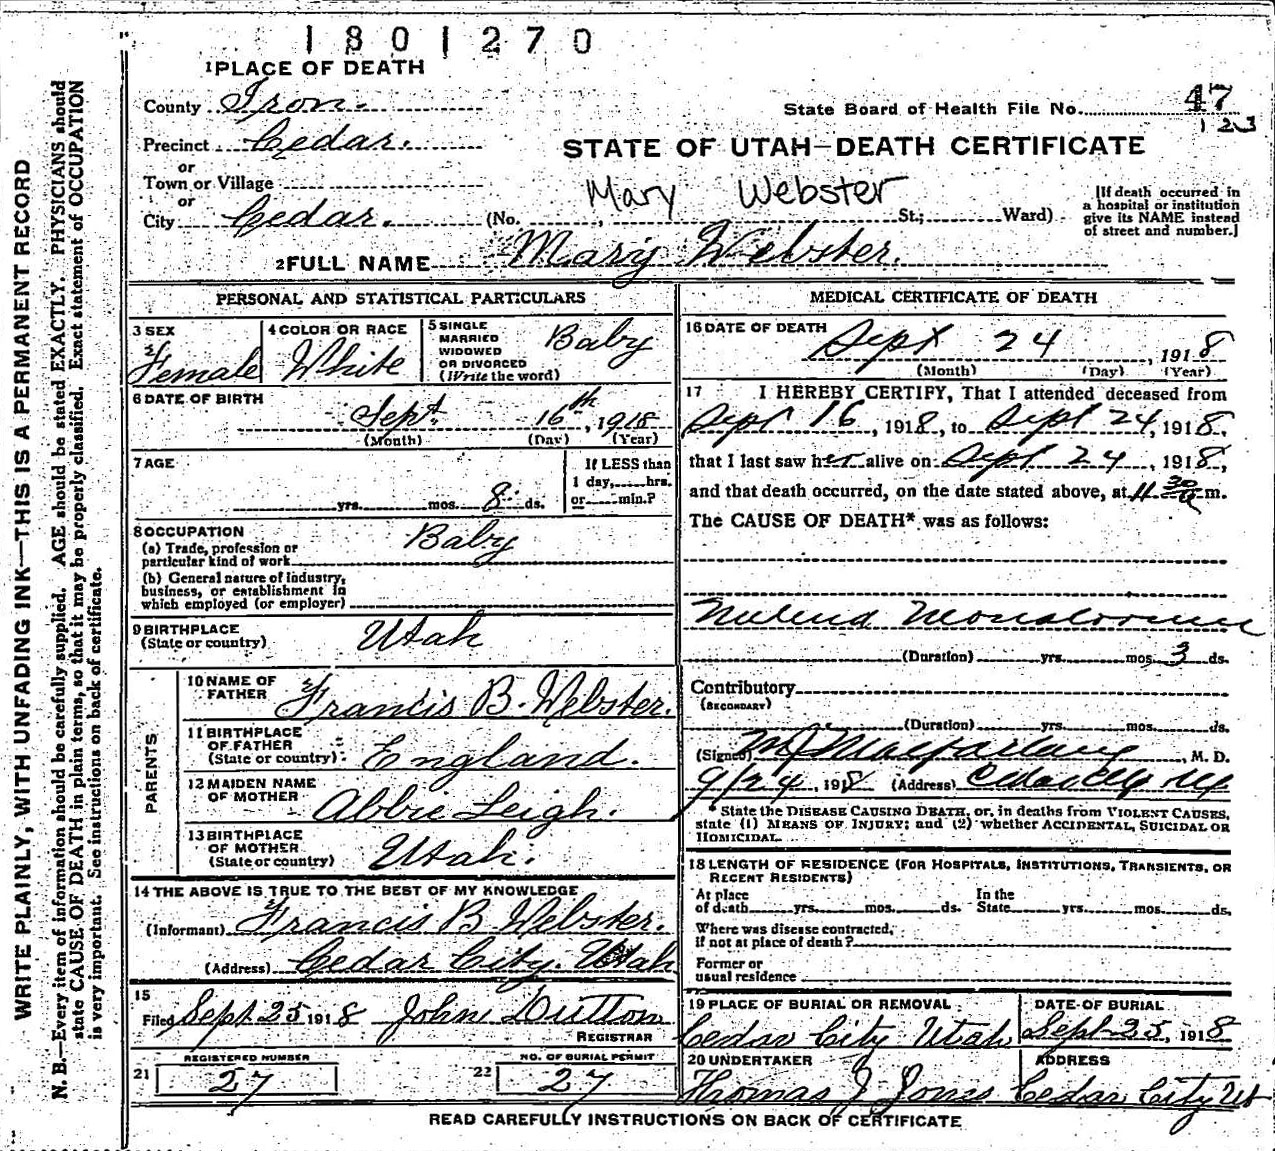 1801270
1 PLACE OF DEATH
County Iron.
State Board of Health File No. 47
123
Precinct Cedar.
STATE OF UTAH—DEATH CERTIFICATE
or
Town or Village
or
Mary Webster
City Cedar. (No. , St.; Ward)
[If death occurred in
a hospital or institution
give its NAME instead
of street and number.]
2 FULL NAME Mary Webster.
PERSONAL AND STATISTICAL PARTICULARS
3 SEX
Female
4 COLOR OR RACE
White
5 SINGLE
MARRIED
WIDOWED
OR DIVORCED
(Write the word)
Baby
6 DATE OF BIRTH
Sept. 16th, 1918
(Month) (Day) (Year)
7 AGE
yrs. mos. 8 ds.
If LESS than
1 day, hrs.
or min.?
8 OCCUPATION
Baby
(a) Trade, profession or
particular kind of work
(b) General nature of industry,
business, or establishment in
which employed (or employer)
9 BIRTHPLACE
(State or country)
Utah
PARENTS
10 NAME OF
FATHER
Francis B. Webster.
11 BIRTHPLACE
OF FATHER
(State or country)
England.
12 MAIDEN NAME
OF MOTHER
Abbie Leigh.
13 BIRTHPLACE
OF MOTHER
(State or country)
Utah.
14 THE ABOVE IS TRUE TO THE BEST OF MY KNOWLEDGE
(Informant) Francis B Webster.
(Address) Cedar City. Utah
15
Filed Sept. 25 1918 John Dutton
REGISTRAR
REGISTERED NUMBER
21 27
NO. OF BURIAL PERMIT
22 27
MEDICAL CERTIFICATE OF DEATH
16 DATE OF DEATH
Sept 24, 1918
(Month) (Day) (Year)
17 I HEREBY CERTIFY, That I attended deceased from
Sept 16, 1918, to Sept 24, 1918,
that I last saw her alive on Sept 24, 1918,
and that death occurred, on the date stated above, at 11 30 a m.
The CAUSE OF DEATH* was as follows:
(Duration) yrs. mos. 3 ds.
Contributory
(SECONDARY)
(Duration) yrs. mos. ds.
(Signed) M J Macfarlane, M. D.
9/24, 1918 (Address) Cedar City Ut
*State the DISEASE CAUSING DEATH, or, in deaths from VIOLENT CAUSES,
state (1) MEANS OF INJURY; and (2) whether ACCIDENTAL, SUICIDAL OR
HOMICIDAL.
18 LENGTH OF RESIDENCE (FOR HOSPITALS, INSTITUTIONS, TRANSIENTS, OR
RECENT RESIDENTS)
At place
of death yrs. mos. ds.
In the
State yrs. mos. ds.
Where was disease contracted,
if not at place of death?
Former or
usual residence
19 PLACE OF BURIAL OR REMOVAL
Cedar City Utah
DATE OF BURIAL
Sept 25, 1918
20 UNDERTAKER
Thomas J Jones
ADDRESS
Cedar City Ut
READ CAREFULLY INSTRUCTIONS ON BACK OF CERTIFICATE
WRITE PLAINLY, WITH UNFADING INK—THIS IS A PERMANENT RECORD
N. B.—Every item of information should be carefully supplied. AGE should be stated EXACTLY. PHYSICIANS should
state CAUSE OF DEATH in plain terms, so that it may be properly classified. Exact statement of OCCUPATION
is very important. See instructions on back of certificate.